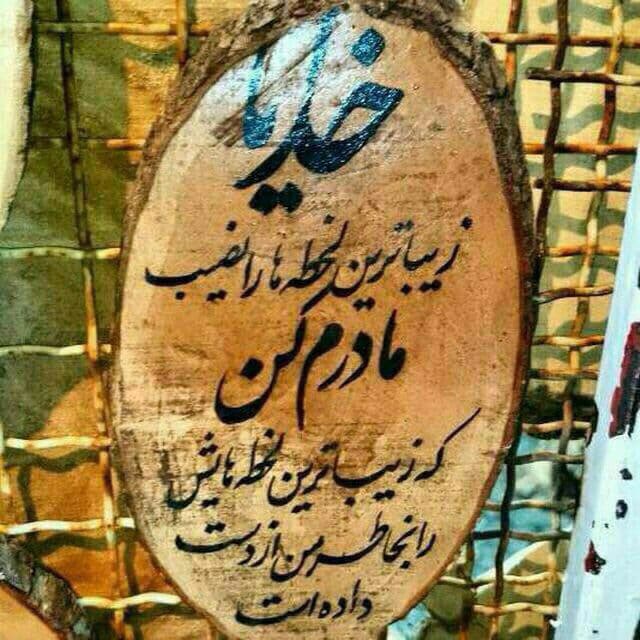 خدایا
زیباترین لحظه ها را نصیب
مادرم کن
که زیباترین لحظه هایش
را بخاطر من از دست
داده است